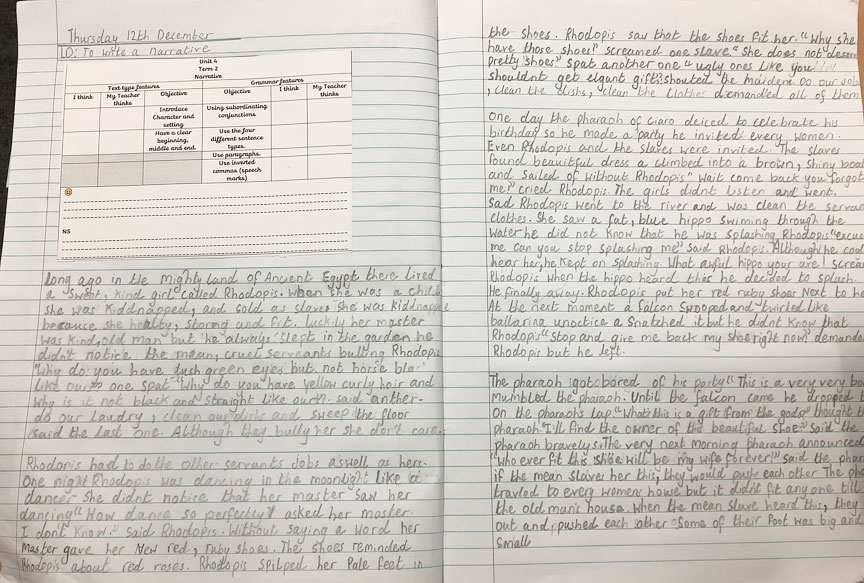 Thursday 12th December
LO: To write a narrative
Unit 4
Term 2
Narrative
Text type features
Grammar features
I think
My Teacher thinks
Objective
Objective
I think
My Teacher thinks
Introduce Character and setting
Using subordinating conjunctions
Have a clear beginning, middle and end.
Use the four different sentence types.
Use paragraphs.
Use inverted commas (speech marks)
NS
long ago in the mighty land of Ancient Egypt there lived
a sweet, kind girl called Rhodopis. When she was a child
she was Kiddnapped, and sold as slave. she was kiddnapped
because she healty, strong and fit. luckily her master
was kind, old man but he always slept in the garden he
didn't notice the mean, cruel servants bulling Rhodopis
"Why do you have lush green eyes but not horse
like ours" one spat "why do you have yellow curly hair and
why is it not black and straight like ours". said anther.
do our laundry, clean our dishs and sweep the floor
said the last one. Although they bully her she don't care.
Rhodopis had to do the other servants jobs aswell as hers.
One night Rhodopis was dancing in the moonlight like a
dancer she didnt notice that her master saw her
dancing "How dance so perfectly" asked her master.
I dont know" said Rhodopis. Without saying a word her
Master gave her New red, ruby shoes. The shoes reminded
Rhodopis about red roses. Rhodopis her Pale feet in
the shoes. Rhodopis saw that the shoes fit her. "Why she
have those shoes" screamed one slave. "She does not
pretty shoes" spat another one "ugly ones like you
shouldnt get elgant gifts" shouted the maidens Do our
, clean the dishs, clean the clothes demandled all of them
One day the pharaoh of Ciaro deiced to celebrate his
birthday so he made a party he invited every women.
Even Rhodopis and the slaves were invited. The slaves
found beauitful dress a climbed into a brown, shiny boat
and sailed of without Rhodopis "wait come back you forgot
me?" cried Rhodopis. The girls didnt listen and went.
Sad Rhodopis went to the river and was clean the
clothes. She saw a fat, blue hippo swiming through the
water he did not know that he was splashing Rhodopis
me can you stop splashing me" said Rhodopis. Although he
hear her, he kept on splashing. What awful hippo your are"
Rhodopis when the hippo heard this he decided to splash.
He finally away. Rhodopis put her red ruby shoes Next to
At the next moment a falcon swooped and twirled like
ballarina a Snatched it but he didnt know that
Rhodopis "stop and give me back my shoe right now
Rhodopis but he left.
The pharaoh got bored of his party "This is a very very
Mumbled the pharaoh. Until the falcon came he dropped
On the pharaoh's lap "What this is a gift from the gods" thought
pharaoh "I'll find the owner of the beautiful shoe" said the
pharaoh bravely. The very next morning pharaoh announced
"Who ever fit this shoe will be my wife forever" said the
if the mean slaves her this, they would push each other The
travled to every women house but it didn't fit any one
the old man's house. When the mean slave heard this, they
out and pushed each other. Some of their foot was big and
small